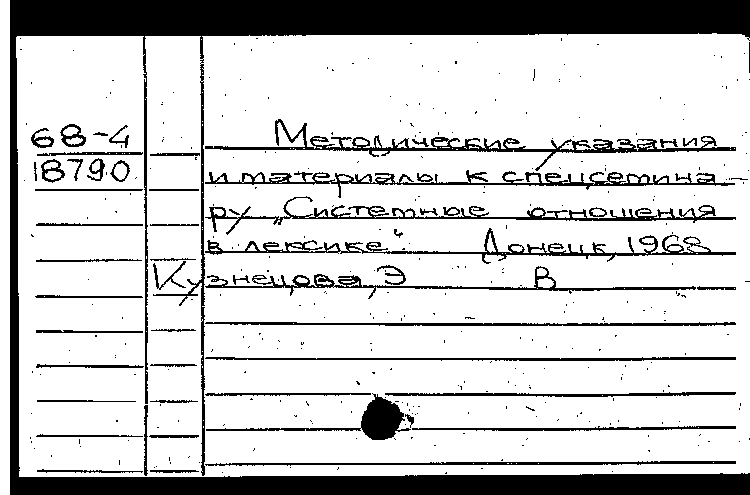 68-4 Методические указания
18790 и материалы к спецсемина-
ру „Системные отношения
в лексике“. Донецк, 1968
Кузнецова, Э В